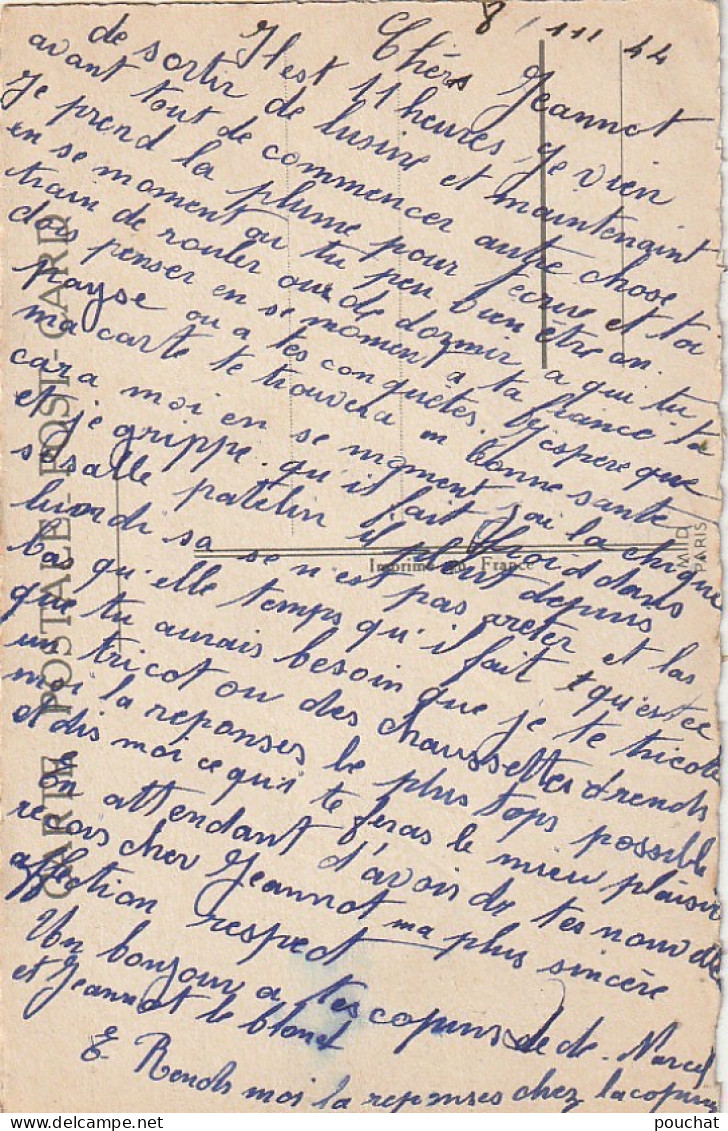 8 / III 44
Chérs Jeannot
Il est 11 heures, je vien
de sortir de lusine et maintenaint
avant tout de commencer autre chose
Je prend la plume pour t'écrire et toi
en se moment ou tu peu bien être en
train de rouler ou de dormir a qui tu
dois penser en se moment a ta fiance ta
payse ou a tes conquêtes. J'espere que
ma carte te trouvera en bonne santé
cara moi en se moment j'ai la chique
et je grippe qu'il fait froid dans
se salle patelin il pleut depuis
lundi sa se n'est pas arreter et las
bas qu'elle temps qu'il fait qu'est ce
que tu aurais besoin que je te tricote
un tricot ou des chaussettes rends
moi la reponses le plus tops possible
et dis moi ce qui te feras le mieu plaisir
En attendant d'avoir de tes nouvelles
reçois cher Jeannot ma plus sincère
affection respect
Un bonjour a tes copins de Marcel
et Jeannot le blond
E. Rends moi la reponses chez la copine
CARTE POSTALE - POST-CARD
Imprimé en France
MID
PARIS
pouchat